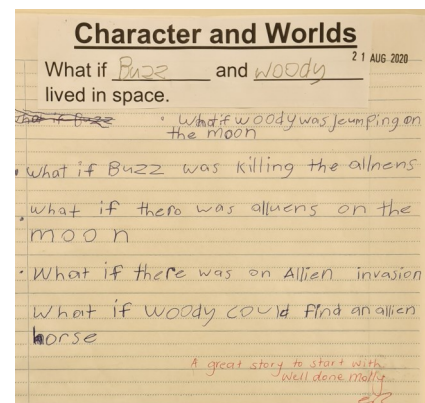 Character and Worlds
21 AUG 2020
What if Buzz and woody
lived in space.
What if woody was jeumping on
the moon
• what if Buzz was killing the allnens
• what if thero was alluens on the
moon
• What if there was on Allien invasion
What if Woody could find an allien
horse
A great story to start with
well done Molly